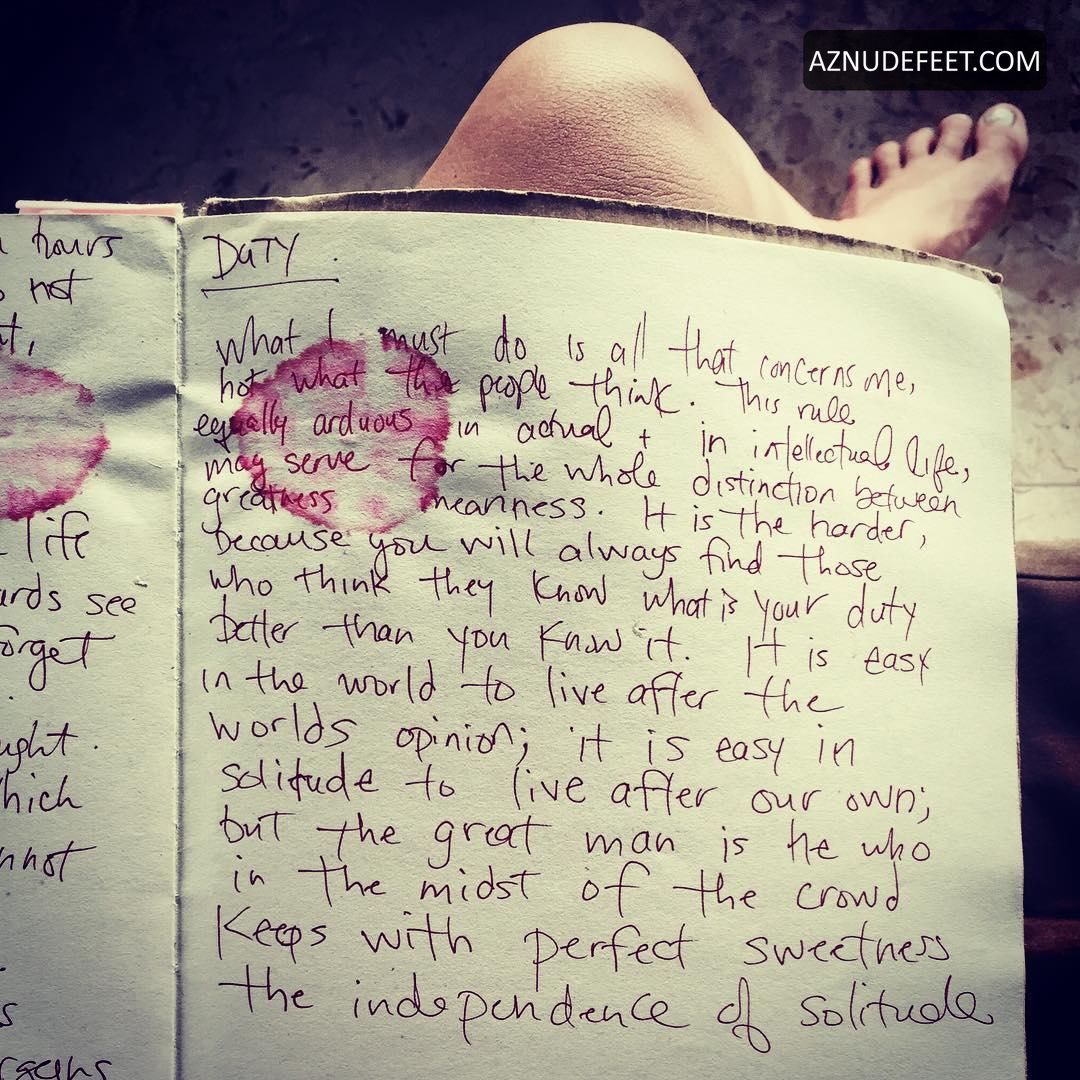 AZNUDEFEET.COM
n hours
not
DUTY.
What I must do is all that concerns me,
not what the people think. This rule
equally arduous in actual + in intellectual life,
may serve for the whole distinction between
greatness meanness. It is the harder,
because you will always find those
who think they know what is your duty
better than you know it. It is easy
in the world to live after the
worlds opinion; it is easy in
solitude to live after our own;
but the great man is he who
in the midst of the crowd
Keeps with perfect sweetness
the independence of solitude
life
ards see
orget
ught.
hich
nnot